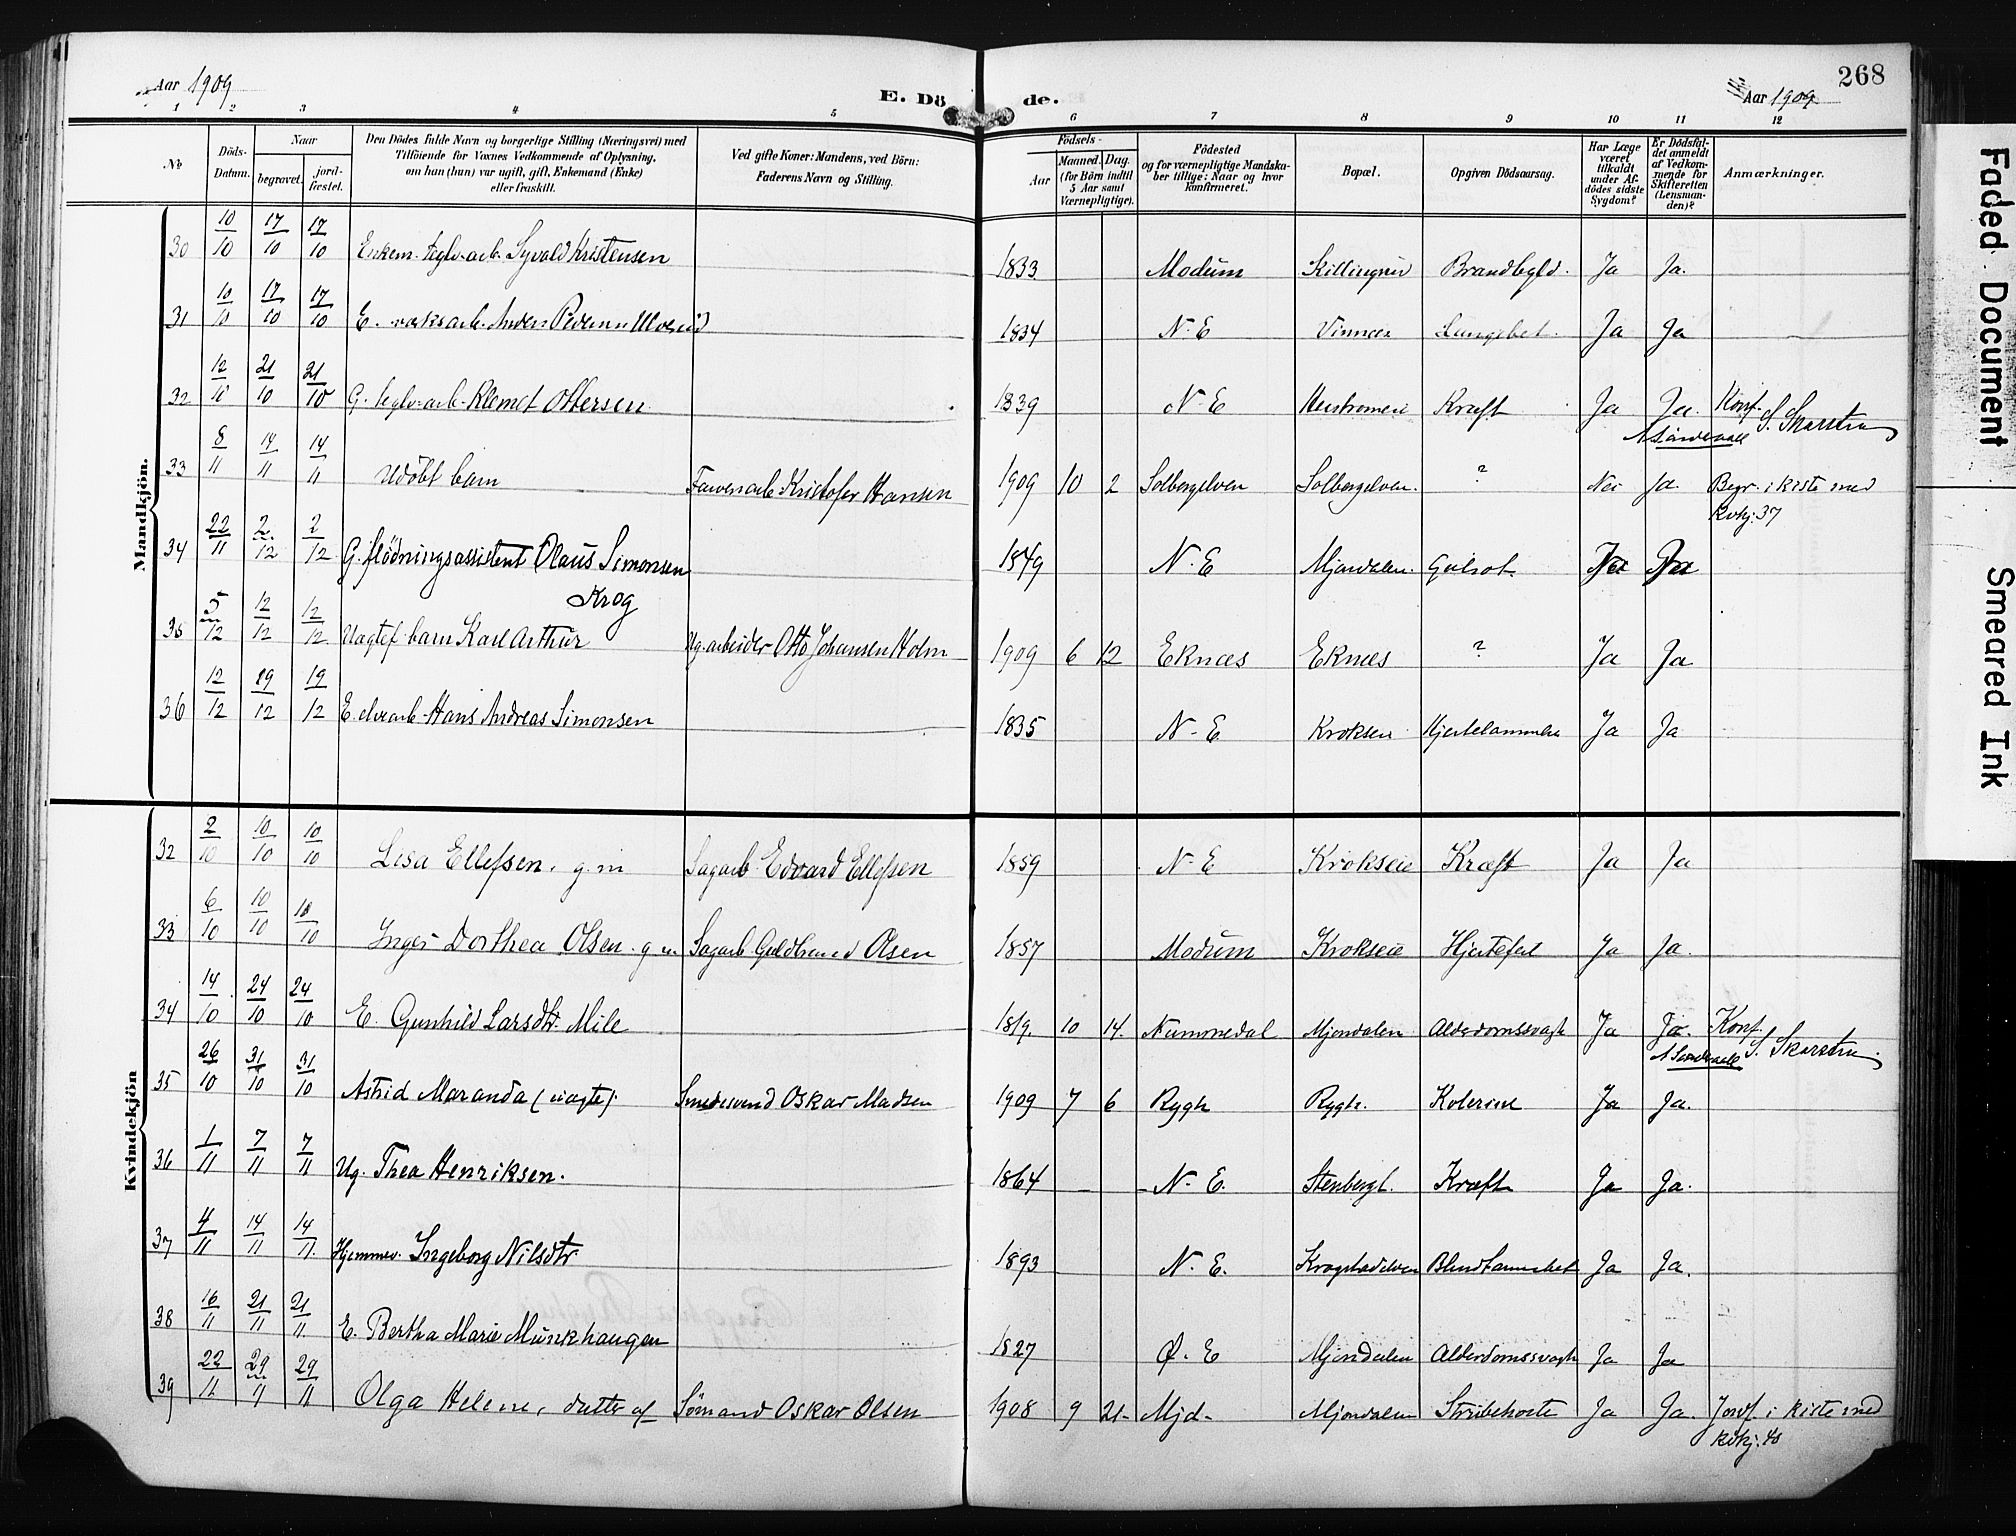 Aar 1909
E. Dö de.
Aar 1909
268
1 2 3 4 5 6 7 8 9 10 11 12
No
Döds-Datum.
Naar begravet. jordfæstet.
Den Dödes fulde Navn og borgerlige Stilling (Næringsvei) med Tilföiende for Voxnes Vedkommende af Oplysning, om han (hun) var ugift, gift, Enkemand (Enke) eller fraskilt.
Ved gifte Koner: Mandens, ved Börn: Faderens Navn og Stilling.
Födsels- Aar Maaned. Dag. (for Börn indtil 5 Aar samt Værnepligtige).
Födested og for værnepligtige Mandskaber tillige: Naar og hvor konfirmeret.
Bopæl.
Opgiven Dödsaarsag.
Har Læge været tilkaldt under Afdödes sidste Sygdom?
Er Dödsfaldet anmeldt af Vedkommende for Skifteretten (Lensmanden)?
Anmærkninger.
Mandkjön.
30 10/10 17/10 17/10 Enkem. teglv.arb. Syvald Kristensen 1833 Modum Killingrud Ja Ja.
31 10/10 17/10 17/10 E. Anders Pedersen 1834 N. E Vinnes Ja Ja
32 12/10 21/10 21/10 G. teglv.arb. Klemet Ottersen 1839 N. E Kræft Ja Ja. Konf. S. Skarstein
33 8/11 14/11 14/11 Udöbt barn Farveriarb Kristofer Hansen 1909 10 2 Solbergelven Solbergelven. ? Nei Ja. Begr. i kiste med kvkj. 37
34 22/11 2/12 2/12 G. flödningsassistent Olaus Simonsen Krog 1849 N. E Mjøndalen. Gulsot.
35 5/12 12/12 12/12 Uægtef. barn Karl Arthur Ug. arbeider Otto Johansen Holm 1909 6 12 Eknæs Eknæs ? Ja Ja
36 12/12 19/12 19/12 E. elvearb. Hans Andreas Simonsen 1835 N. E Kroksen Hjertelammelse Ja Ja
Kvindekjön
32 2/10 10/10 10/10 Lesa Ellefsen, g. m Sagarb. Edvard Ellefsen 1859 N. E Krokseie Kræft Ja Ja
33 6/10 10/10 10/10 Inger Dorthea Olsen. g m. Sagarb Guldbrand Olsen 1857 Modum Krokseie Hjertefeil Ja Ja.
34 14/10 24/10 24/10 E. Gunhild Larsdtr. Mile 1819. 10 14. Nummedal Mjøndalen Alderdomssvagh Ja Ja. Konf. S. Skarstein
35 26/10 31/10 31/10 Astrid Maranda (uægte). Smedesvend Oskar Madsen 1909 7 6 Rygh Rygh. Kolerine Ja Ja.
36 1/11 7/11 7/11 Ug. Thea Henriksen. 1864 N. E. Stenbergt. Kræft Ja Ja.
37 4/11 14/11 14/11 Hjemmev. Ingeborg Nilsdtr 1893 N. E. Krogstadelven Blindtarmsbet Ja Ja.
38 16/11 21/11 21/11. E. Bertha Marie Munkhaugen 1827 Ø. E Mjøndalen Alderdomssvagh Ja Ja
39 22/11 29/11 29/11 Olga Helene, datter af Sømand Oskar Olsen 1908 9 21. Mjd. Mjøndalen Strubehoste Ja Ja. Jordf. i kiste med kvkj. 40
Faded Document
Smeared Ink